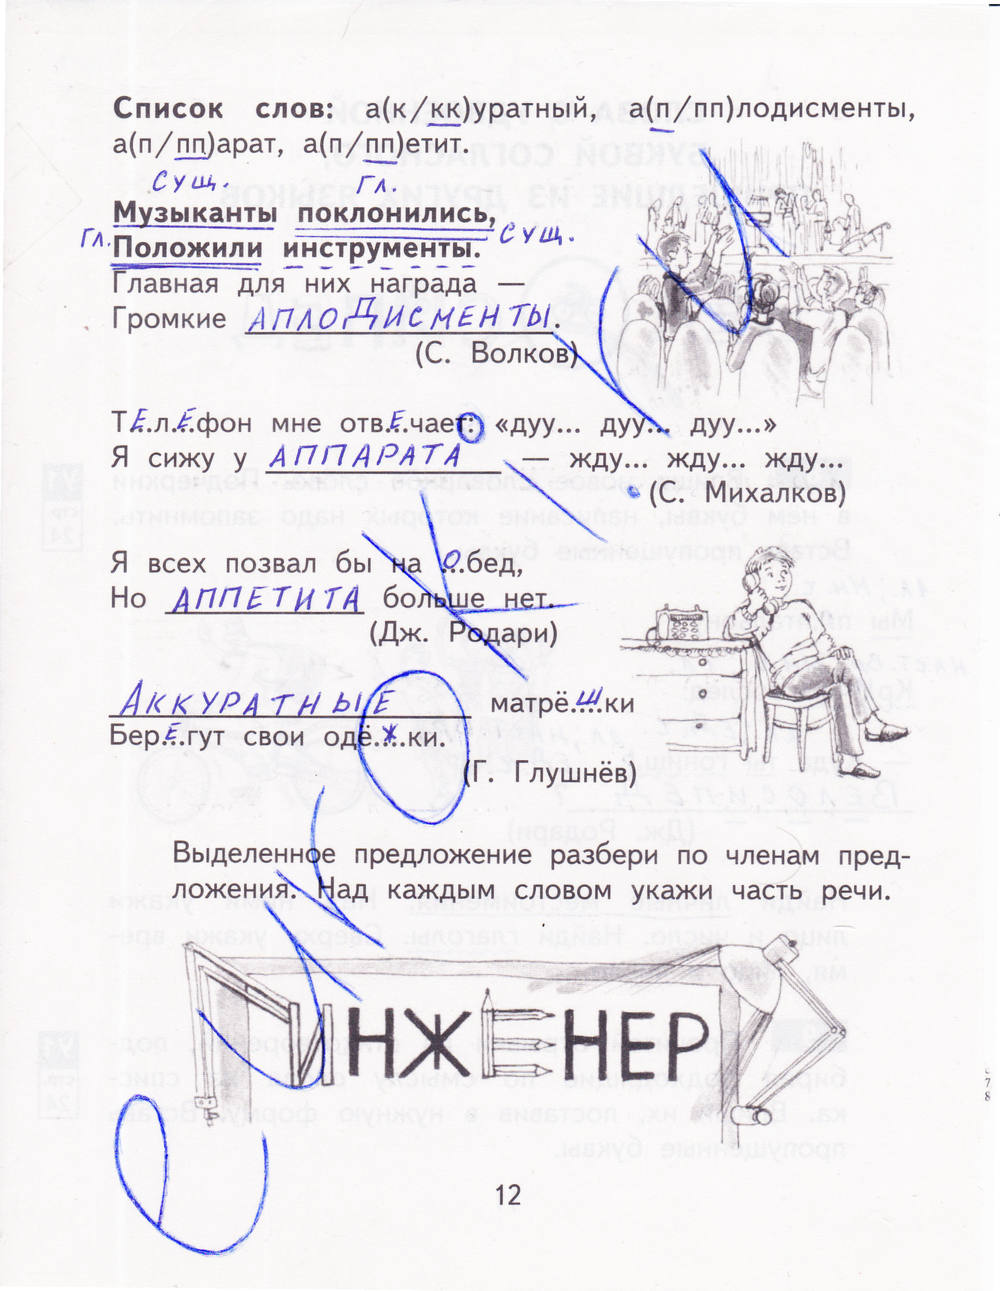 Список слов: а(к/кк)уратный, а(п/пп)лодисменты,
а(п/пп)арат, а(п/пп)етит.
сущ. гл.
Музыканты поклонились,
гл. Положили инструменты. сущ.
Главная для них награда —
Громкие АПЛОДИСМЕНТЫ.
(С. Волков)
ТЕ..лЕ..фон мне отвЕ..чает: «дуу... дуу... дуу...»
Я сижу у АППАРАТА — жду... жду... жду...
(С. Михалков)
Я всех позвал бы на О...бед,
Но АППЕТИТА больше нет.
(Дж. Родари)
АККУРАТНЫЕ матрёШ...ки
БерЕ..гут свои одёЖ...ки.
(Г. Глушнёв)
Выделенное предложение разбери по членам пред-
ложения. Над каждым словом укажи часть речи.
ИНЖЕНЕР
12